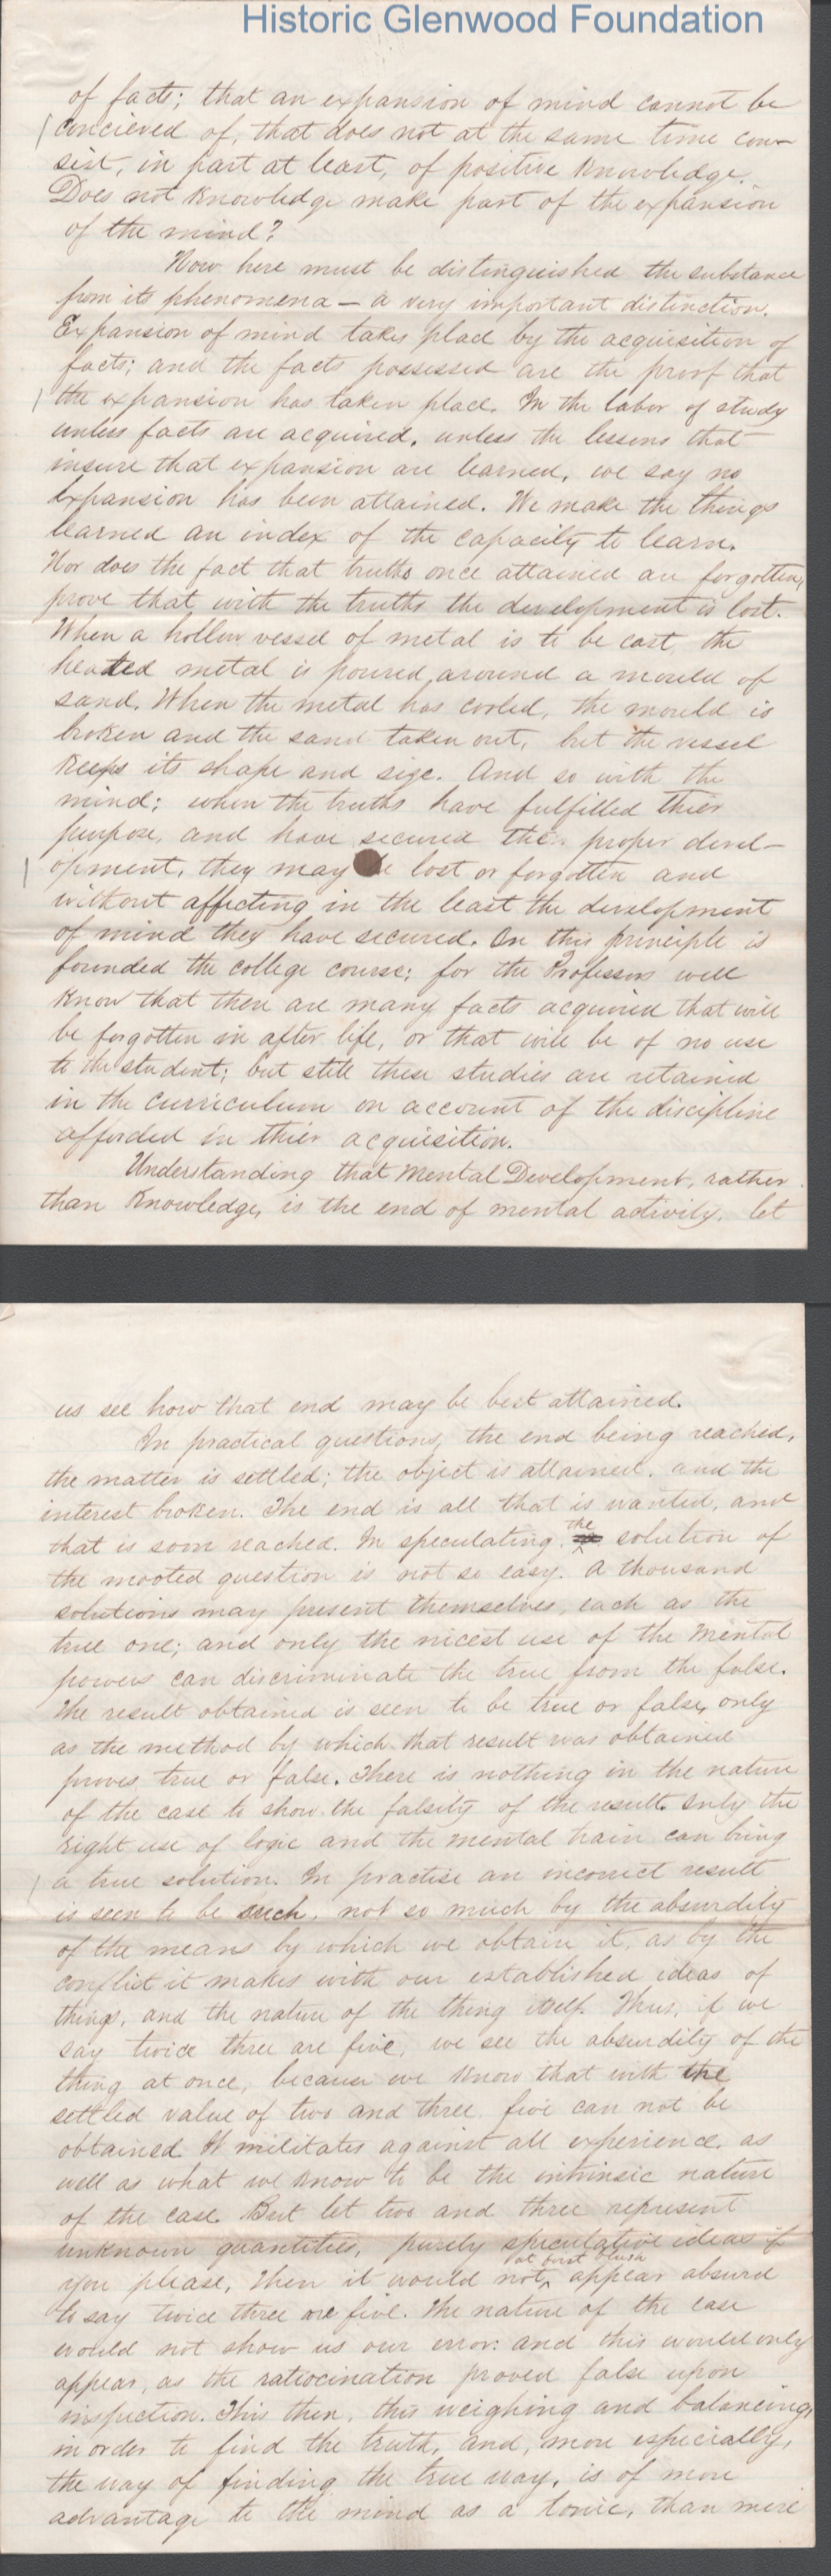 Historic Glenwood Foundation
of facts; that an expansion of mind cannot be
concieved of, that does not at the same time con-
sist, in part at least, of positive knowledge.
Does not knowledge make part of the expansion
of the mind?
Now here must be distinguished the substance
from its phenomena — a very important distinction.
Expansion of mind takes place by the acquisition of
facts; and the facts possessed are the proof that
the expansion has taken place. In the labor of study
unless facts are acquired, unless the lessons that
insure that expansion are learned, we say no
expansion has been attained. We make the things
learned an index of the capacity to learn.
Nor does the fact that truths once attained are forgotten,
prove that with the truths the development is lost.
When a hollow vessel of metal is to be cast, the
heated metal is poured around a mould of
sand. When the metal has cooled, the mould is
broken and the sand taken out, but the vessel
keeps its shape and size. And so with the
mind: when the truths have fulfilled thier
purpose, and have secured the proper devel-
opment, they may be lost or forgotten and
without affecting in the least the development
of mind they have secured. On this principle is
founded the college course; for the Professors well
know that there are many facts acquired that will
be forgotten in after life, or that will be of no use
to the student; but still these studies are retained
in the curriculum on account of the discipline
afforded in thier acquisition.
Understanding that Mental Development, rather
than Knowledge, is the end of mental activity, let
us see how that end may be best attained.
In practical questions, the end being reached,
the matter is settled; the object is attained, and the
interest broken. The end is all that is wanted, and
that is soon reached. In speculating, the solution of
the mooted question is not so easy. A thousand
solutions may present themselves, each as the
true one; and only the nicest use of the mental
powers can discriminate the true from the false.
The result obtained is seen to be true or false, only
as the method by which that result was obtained
proves true or false. There is nothing in the nature
of the case to show the falsity of the result. Only the
right use of logic and the mental train can bring
a true solution. In practise an incorrect result
is seen to be such, not so much by the absurdity
of the means by which we obtain it, as by the
conflict it makes with our established ideas of
things, and the nature of the thing itself. Thus, if we
say twice three are five, we see the absurdity of the
thing at once, because we know that with the
settled value of two and three five can not be
obtained. It militates against all experience, as
well as what we know to be the intrinsic nature
of the case. But let two and three represent
unknown quantities, purely speculative ideas if
you please, then it would not at first blush appear absurd
to say twice three are five. The nature of the case
would not show us our error: and this would only
appear, as the ratiocination proved false upon
inspection. This then, this weighing and balancing,
in order to find the truth, and, more especially,
the way of finding the true way, is of more
advantage to the mind as a tonic, than mere